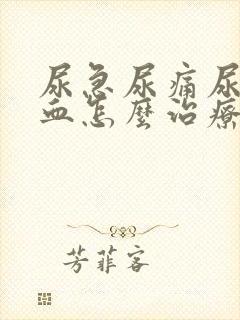 尿急尿痛尿
血怎麼治療
芳菲客